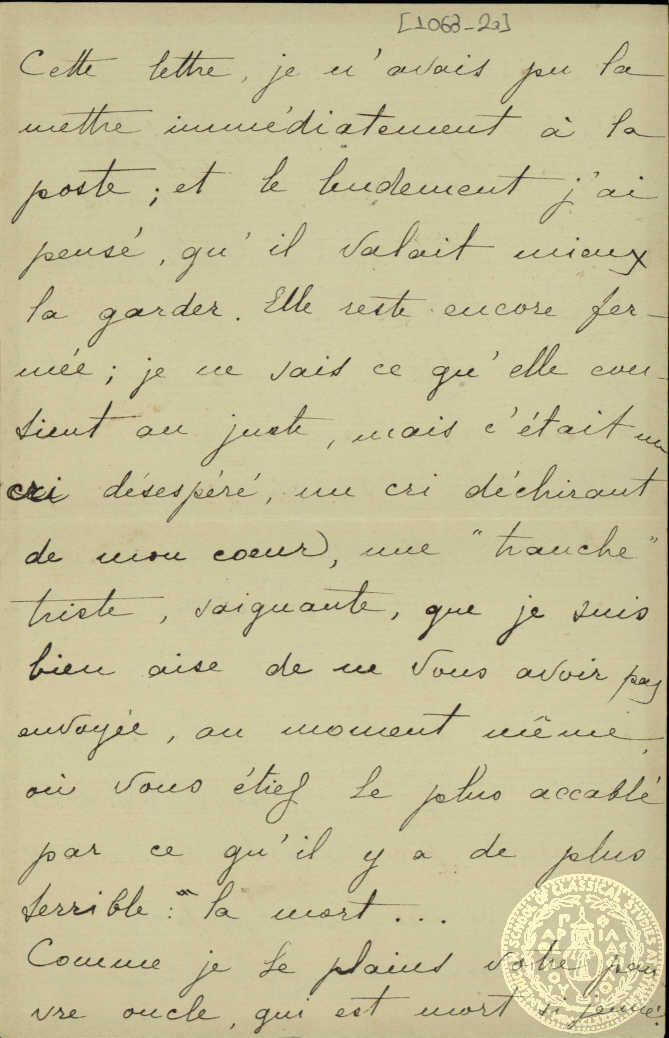 [1063-2a]
Cette lettre, je n'avais pu la
mettre immédiatement à la
poste ; et le lendement j'ai
pensé, qu'il valait mieux
la garder. Elle reste encore fer-
mée ; je ne sais ce qu'elle con-
tient au juste, mais c'était un
cri désespéré, un cri déchirant
de mon coeur, une "tranche"
triste, saignante, que je suis
bien aise de ne vous avoir pas
envoyée, au moment même,
où vous étiez le plus accablé
par ce qu'il y a de plus
terrible : la mort...
Comme je le plains votre pau
vre oncle, qui est mort si jeune!
SCHOOL OF CLASSICAL STUDIES